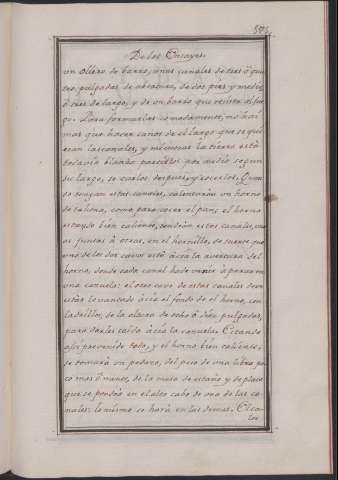 De los Ensayes.
un ollero de barro, unas canales de tres ó qua
tro pulgadas de abertura, de dos pies y medio,
ó tres de largo, y de un barro que resista el fue
go. Para formarlas comodamente, no hai
mas que hacer caños de el largo que se quie
ran las canales, y mientras la tierra está
todavia blanda partirlos por medio segun
su largo, secarlos despues, y cocerlos. Quan
do tengan estas canales, calentarán un horno
de tahona, como para cocer el pan; el horno
estando bien caliente, tendrán estas canales, una
as juntas á otras, en el hornillo, de suerte que
uno de los dos cavos esté ácia la avertura del
horno, donde cada canal ha de venir á parar en
una cazuela: el otro cavo de estas canales deve
estár levantado ácia el fondo de el horno, con
ladrillos, de la altura de ocho ó diez pulgadas,
para darles caida ácia la cazuela. Estando
assi prevenido todo, y el horno bien caliente,
se tomará un pedazo, del peso de una libra po
co mas ó menos, de la masa de estaño y de plata
que se pondrá en el alto cabo de una de las ca
nales: lo mismo se hará en las demas. El ca
lor